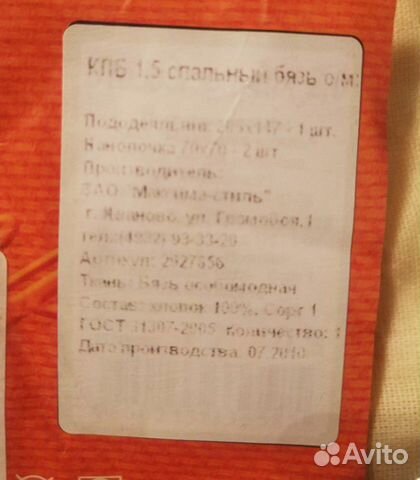 КПБ 1,5 спальный бязь о/м
Пододеяльник: 205х147 - 1 шт.
Наволочка 70х70 - 2 шт
Производитель:
ЗАО "Максима-стиль"
г. Иваново, ул. Громобоя,1
тел.:(4932) 93-33-20
Артикул: 2927656
Ткань: Бязь особомодная
Состав: хлопок 100%. Сорт 1
ГОСТ 31307-2005 Количество: 1
Дата производства: 07.2010
Avito